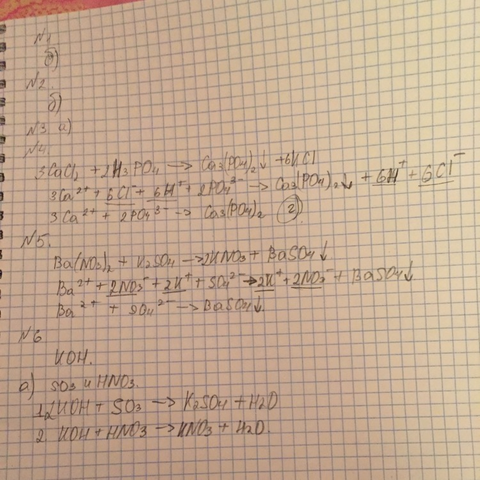 N1
б)
N2.
б)
N3 а)
N4.
3CaCl₂ + 2H₃PO₄ → Ca₃(PO₄)₂↓ + 6HCl
3Ca²⁺ + 6Cl⁻ + 6H⁺ + 2PO₄³⁻ → Ca₃(PO₄)₂↓ + 6H⁺ + 6Cl⁻
3Ca²⁺ + 2PO₄³⁻ → Ca₃(PO₄)₂ (2)
N5.
Ba(NO₃)₂ + K₂SO₄ → 2KNO₃ + BaSO₄↓
Ba²⁺ + 2NO₃⁻ + 2K⁺ + SO₄²⁻ → 2K⁺ + 2NO₃⁻ + BaSO₄↓
Ba²⁺ + SO₄²⁻ → BaSO₄↓
N6
KOH.
а) SO₃ и HNO₃.
1. 2KOH + SO₃ → K₂SO₄ + H₂O
2 KOH + HNO₃ → KNO₃ + H₂O.